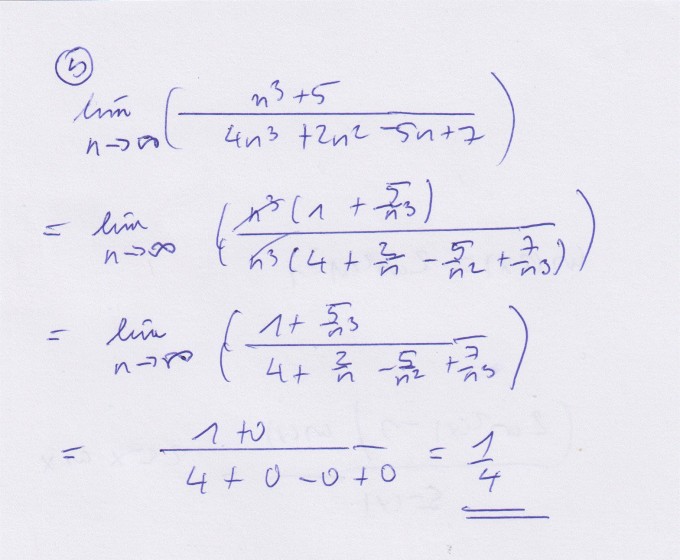 5
lim n→∞ ( (n³+5) / (4n³+2n²-5n+7) )
= lim n→∞ ( n³(1 + 5/n³) / n³(4 + 2/n - 5/n² + 7/n³) )
= lim n→∞ ( (1 + 5/n³) / (4 + 2/n - 5/n² + 7/n³) )
= (1+0) / (4+0-0+0) = 1/4